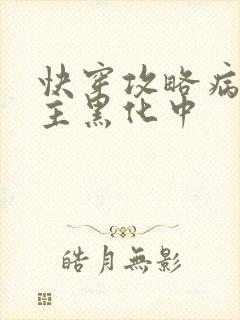 快穿攻略病
主黑化中
皓月無影